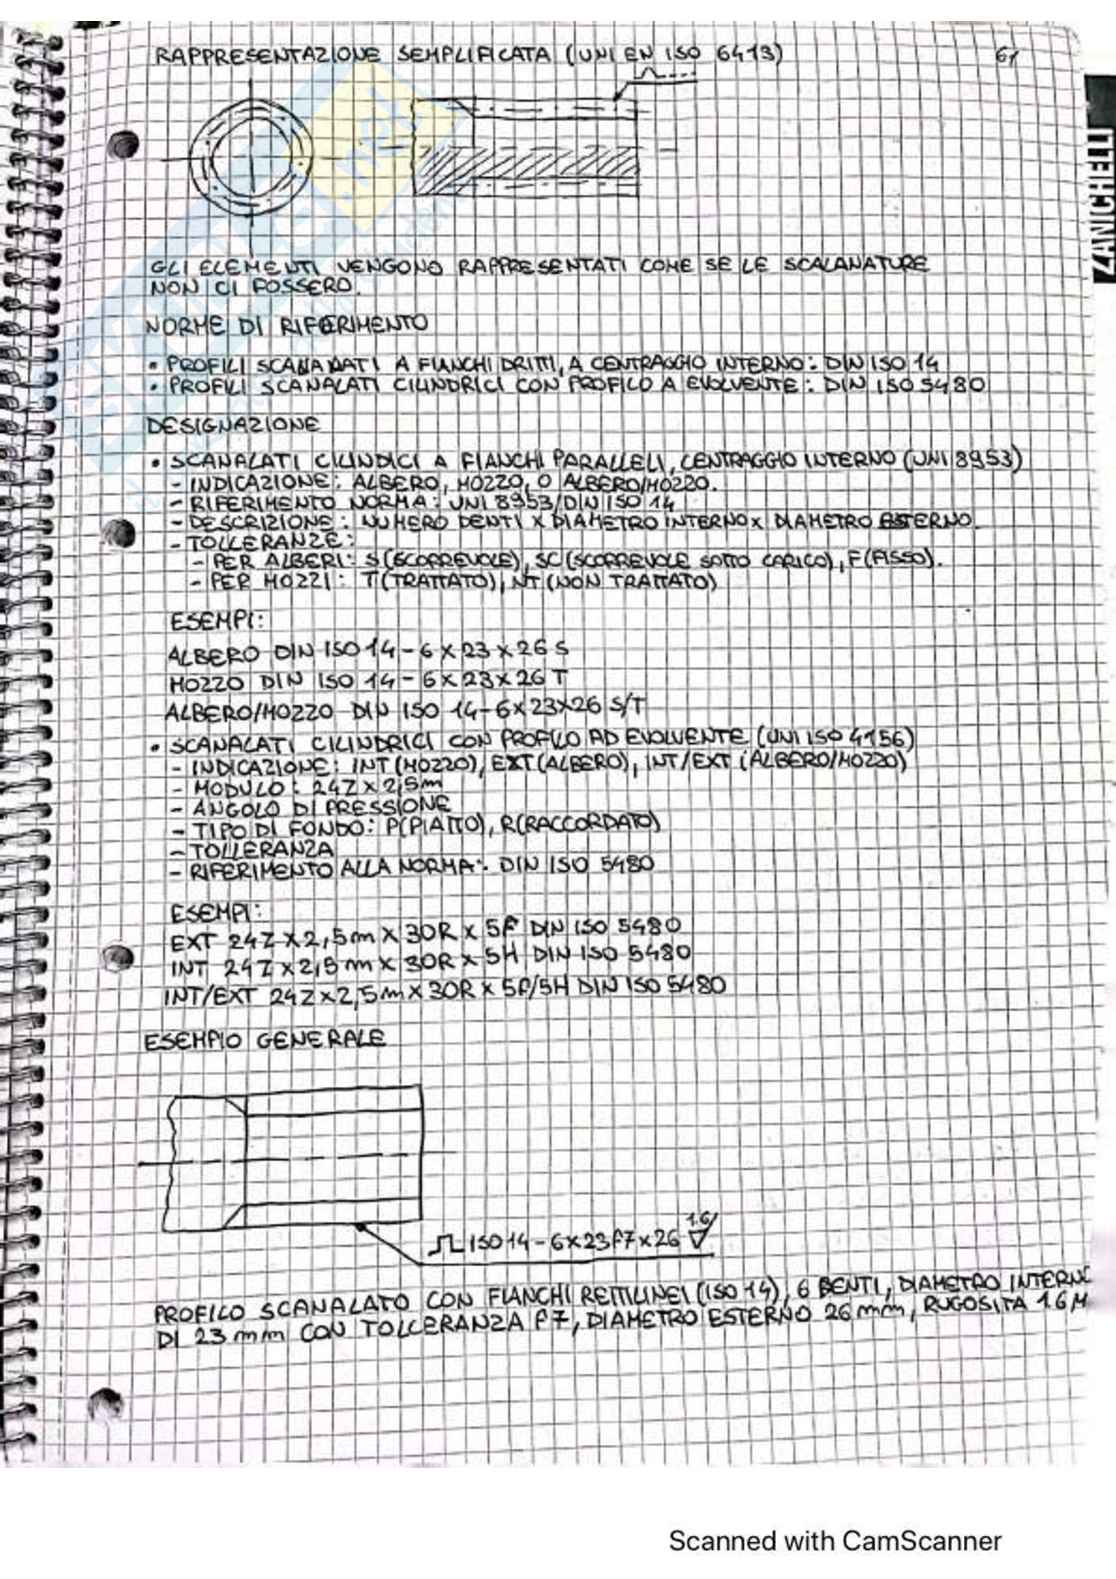 RAPPRESENTAZIONE SEMPLIFICATA (UNI EN ISO 6413)
61
ZANICHELLI
GLI ELEMENTI VENGONO RAPPRESENTATI COME SE LE SCALANATURE
NON CI FOSSERO.
NORME DI RIFERIMENTO
• PROFILI SCANALATI A FIANCHI DRITTI, A CENTRAGGIO INTERNO: DIN ISO 14
• PROFILI SCANALATI CILINDRICI CON PROFILO A EVOLVENTE: DIN ISO 5480
DESIGNAZIONE
• SCANALATI CILINDICI A FIANCHI PARALLELI, CENTRAGGIO INTERNO (UNI 8953)
- INDICAZIONE: ALBERO, MOZZO, O ALBERO/MOZZO.
- RIFERIMENTO NORMA: UNI 8953/DIN ISO 14
- DESCRIZIONE: NUMERO DENTI X DIAMETRO INTERNO X DIAMETRO ESTERNO.
- TOLLERANZE:
- PER ALBERI: S (SCORREVOLE), SC (SCORREVOLE SOTTO CARICO), F (FISSO).
- PER MOZZI: T (TRATTATO), NT (NON TRATTATO)
ESEMPI:
ALBERO DIN ISO 14 - 6 X 23 X 26 S
MOZZO DIN ISO 14 - 6 X 23 X 26 T
ALBERO/MOZZO DIN ISO 14 - 6 X 23 X 26 S/T
• SCANALATI CILINDRICI CON PROFILO AD EVOLVENTE (UNI ISO 4156)
- INDICAZIONE: INT (MOZZO), EXT (ALBERO), INT/EXT (ALBERO/MOZZO)
- MODULO: 24Z X 2,5m
- ANGOLO DI PRESSIONE
- TIPO DI FONDO: P(PIATTO), R(RACCORDATO)
- TOLLERANZA
- RIFERIMENTO ALLA NORMA: DIN ISO 5480
ESEMPI:
EXT 24Z X 2,5m X 30R X 5f DIN ISO 5480
INT 24Z X 2,5m X 30R X 5H DIN ISO 5480
INT/EXT 24Z X 2,5m X 30R X 5f/5H DIN ISO 5480
ESEMPIO GENERALE
ISO 14 - 6 X 23f7 X 26 1.6
PROFILO SCANALATO CON FIANCHI RETTILINEI (ISO 14), 6 DENTI, DIAMETRO INTERNO
DI 23 mm CON TOLLERANZA f7, DIAMETRO ESTERNO 26 mm, RUGOSITÀ 1.6 M
Scanned with CamScanner